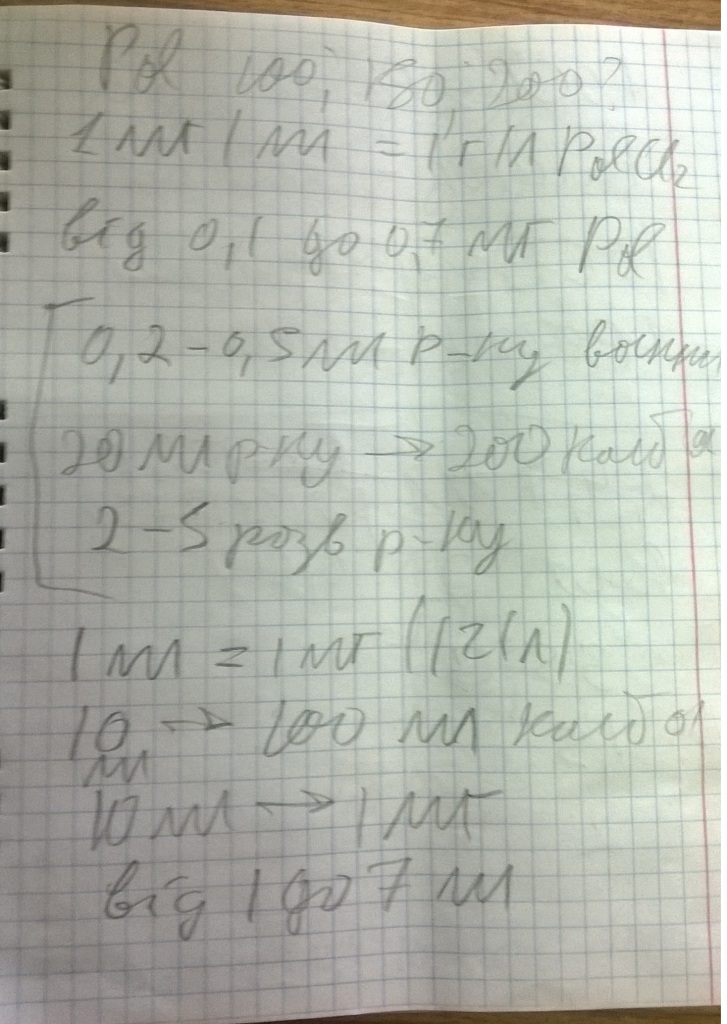 Pd 100, 150, 200?
1 мг/мл = 1 г/л PdCl₂
від 0,1 до 0,7 мг Pd
0,2-0,5 мл р-ну
20 мл р-ну → 200 колба
2-5 розв р-ну
1 мл = 1 мг (1г/л)
10 мл → 100 мл колба
10 мл → 1 мг
від 1 до 7 мл